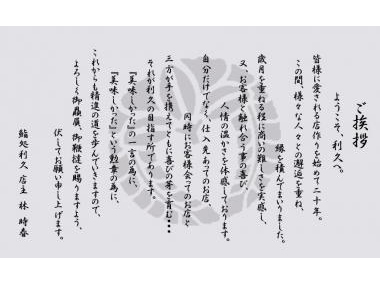 ご挨拶
ようこそ、利久へ。
皆様に愛される店作りを始めて二十年。
この間、様々な人々との邂逅を重ね、
縁を積んでまいりました。
歳月を重ねる程に商いの難しさを実感し、
又、お客様と触れ合う事の喜び、
人情の温かさを体感しております。
自分だけでなく、仕入先あってのお店、
同時にお客様会ってのお店と
三方が手を携えてともに喜びの箸を育む・・・
それが利久の目指す所であります。
『美味しかった』の一言の為に、
『美味しかった』という勲章の為に、
これからも精進の道を歩んでいきますので、
よろしく御贔屓、御鞭撻を賜りますよう、
伏してお願い申し上げます。
鮨処利久 店主 林 時春